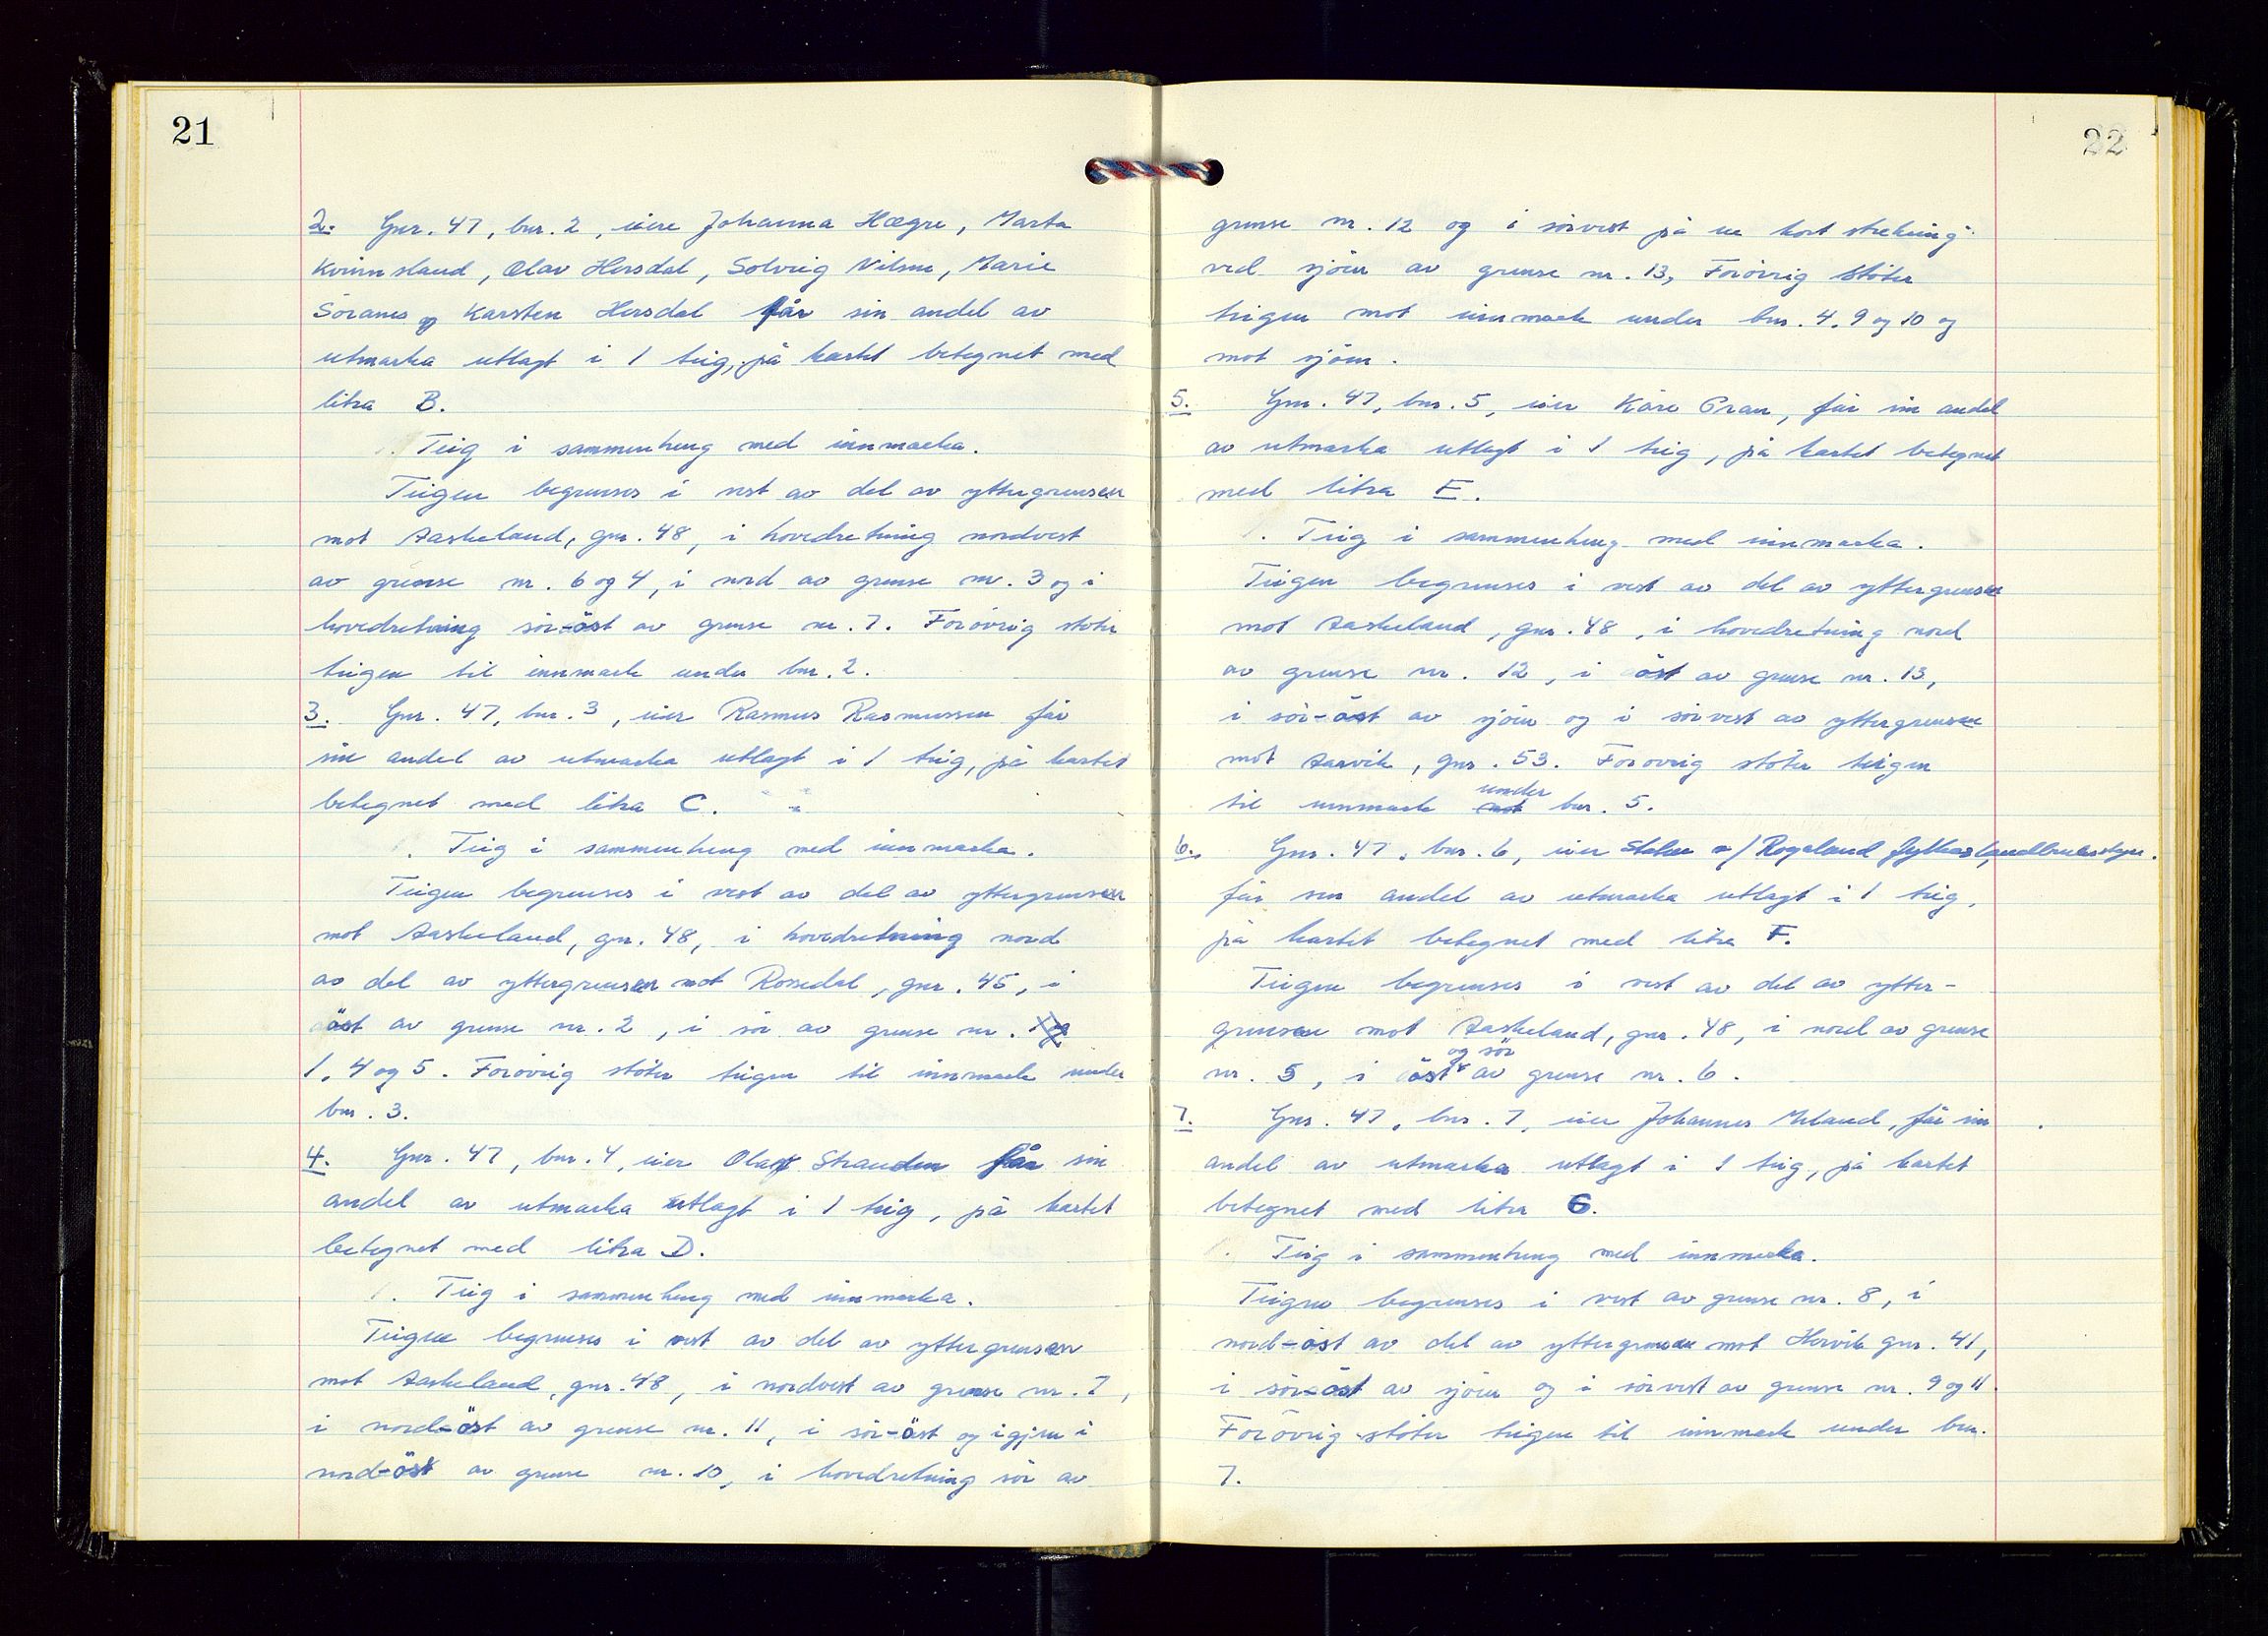 21
2. Gnr. 47, bnr. 2, eiere Johanna Hægre, Marta
Kvinnsland, Olav Hersdal, Solveig Nilsen, Marie
Söranes og Karsten Hersdal får sin andel av
utmarka utlagt i 1 teig, på kartet betegnet med
litra B.
Teig i sammenheng med innmarka.
Teigen begrenses i vest av del av yttergrensen
mot Aaskeland, gnr. 48, i hovedretning nordvest
av grense nr. 6 og 4, i nord av grense nr. 3 og i
hovedretning sör-öst av grense nr. 7. Forövrig stöter
teigen til innmark under bnr. 2.
3. Gnr. 47, bnr. 3, eier Rasmus Rasmussen får
sin andel av utmarka utlagt i 1 teig, på kartet
betegnet med litra C.
Teig i sammenheng med innmarka.
Teigen begrenses i vest av del av yttergrensen
mot Aaskeland, gnr. 48, i hovedretning nord
av del av yttergrensen mot Rossedal, gnr. 45, i
öst av grense nr. 2, i sör av grense nr.
1, 4 og 5. Forövrig stöter teigen til innmark under
bnr. 3.
4. Gnr. 47, bnr. 4, eier Olaf Stranden får sin
andel av utmarka utlagt i 1 teig, på kartet
betegnet med litra D.
Teig i sammenheng med innmarka.
Teigen begrenses i vest av del av yttergrensen
mot Aaskeland, gnr. 48, i nordvest av grense nr. 7,
i nord-öst av grense nr. 11, i sör-öst og igjen i
nord-öst av grense nr. 10, i hovedretning sör av
22
grense nr. 12 og i sörvest på en kort strekning
ved sjöen av grense nr. 13, Forövrig stöter
teigen mot innmark under bnr. 4, 9 og 10 og
mot sjöen.
5. Gnr. 47, bnr. 5, eier Kåre Oran, får sin andel
av utmarka utlagt i 1 teig, på kartet betegnet
med litra E.
Teig i sammenheng med innmarka.
Teigen begrenses i vest av del av yttergrensen
mot Aaskeland, gnr. 48, i hovedretning nord
av grense nr. 12, i öst av grense nr. 13,
i sör-öst av sjöen og i sörvest av yttergrensen
mot Aarvik, gnr. 53. Forövrig stöter teigen
til innmark mot under bnr. 5.
6. Gnr. 47, bnr. 6, eier Staten v/ Rogaland fylkeslandbruksstyre.
får sin andel av utmarka utlagt i 1 teig,
på kartet betegnet med litra F.
Teigen begrenses i vest av del av ytter-
grensen mot Aaskeland, gnr. 48, i nord av grense
nr. 5, i öst og sör av grense nr. 6.
7. Gnr. 47, bnr. 7, eier Johannes Meland, får sin
andel av utmarka utlagt i 1 teig, på kartet
betegnet med litra G.
Teig i sammenheng med innmarka.
Teigen begrenses i vest av grense nr. 8, i
nord-öst av del av yttergrensen mot Hervik gnr. 41,
i sör-öst av sjöen og i sörvest av grense nr. 9 og 11.
Forövrig stöter teigen til innmark under bnr.
7.